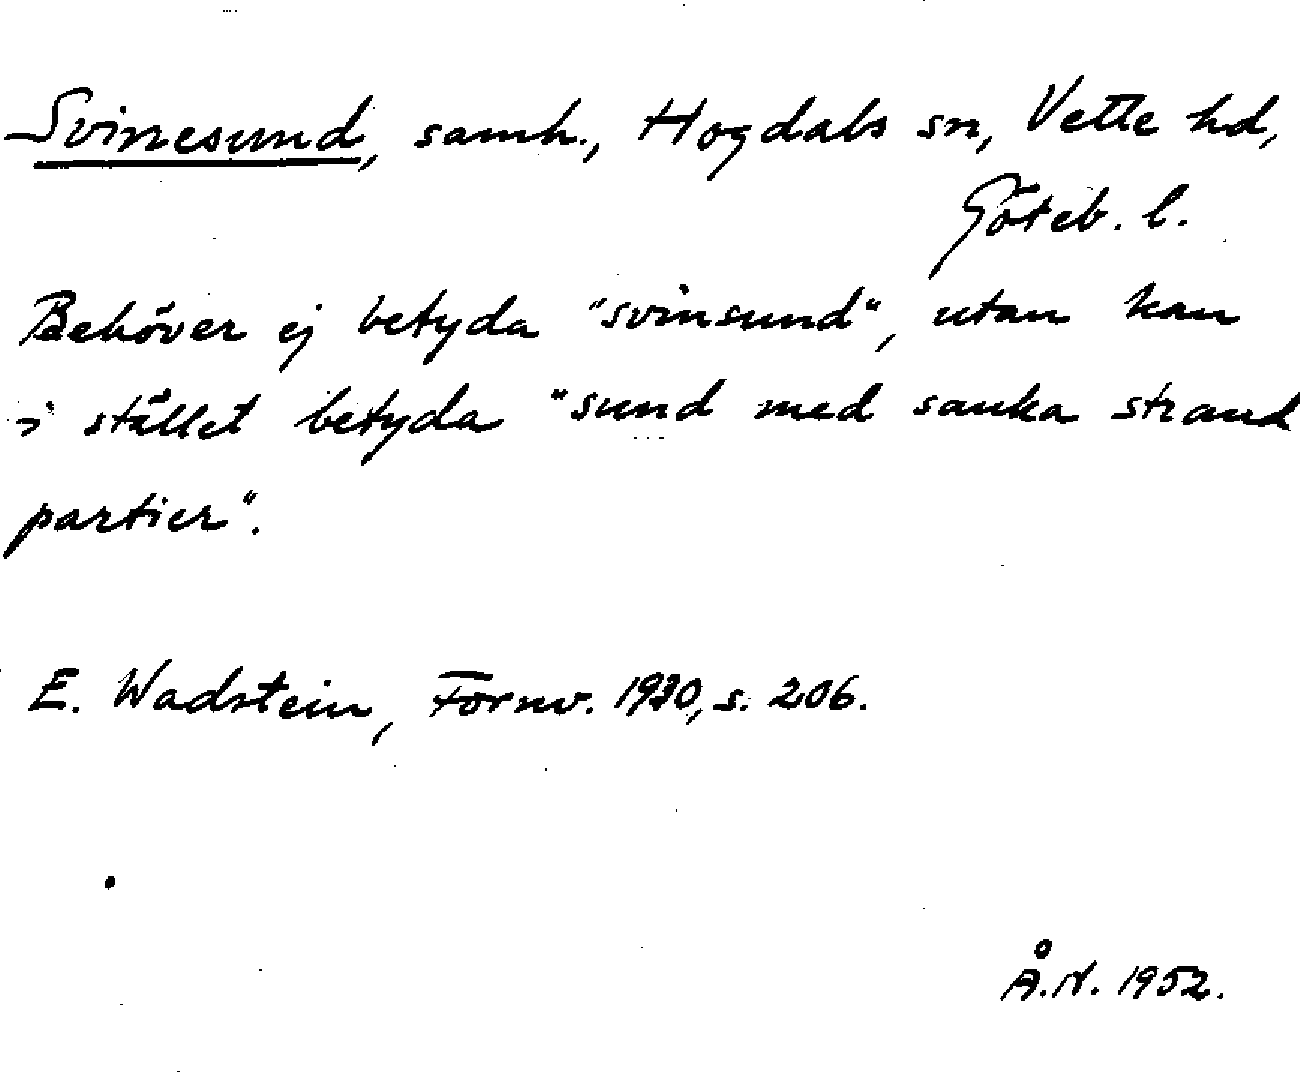 Svinesund, samh., Hogdals sn, Vette hd,
Göteb. l.
Behöver ej betyda "svinsund", utan kan
i stället betyda "sund med sanka strand
partier".
E. Wadstein, Fornv. 1930, s. 206.
Å.N. 1952.